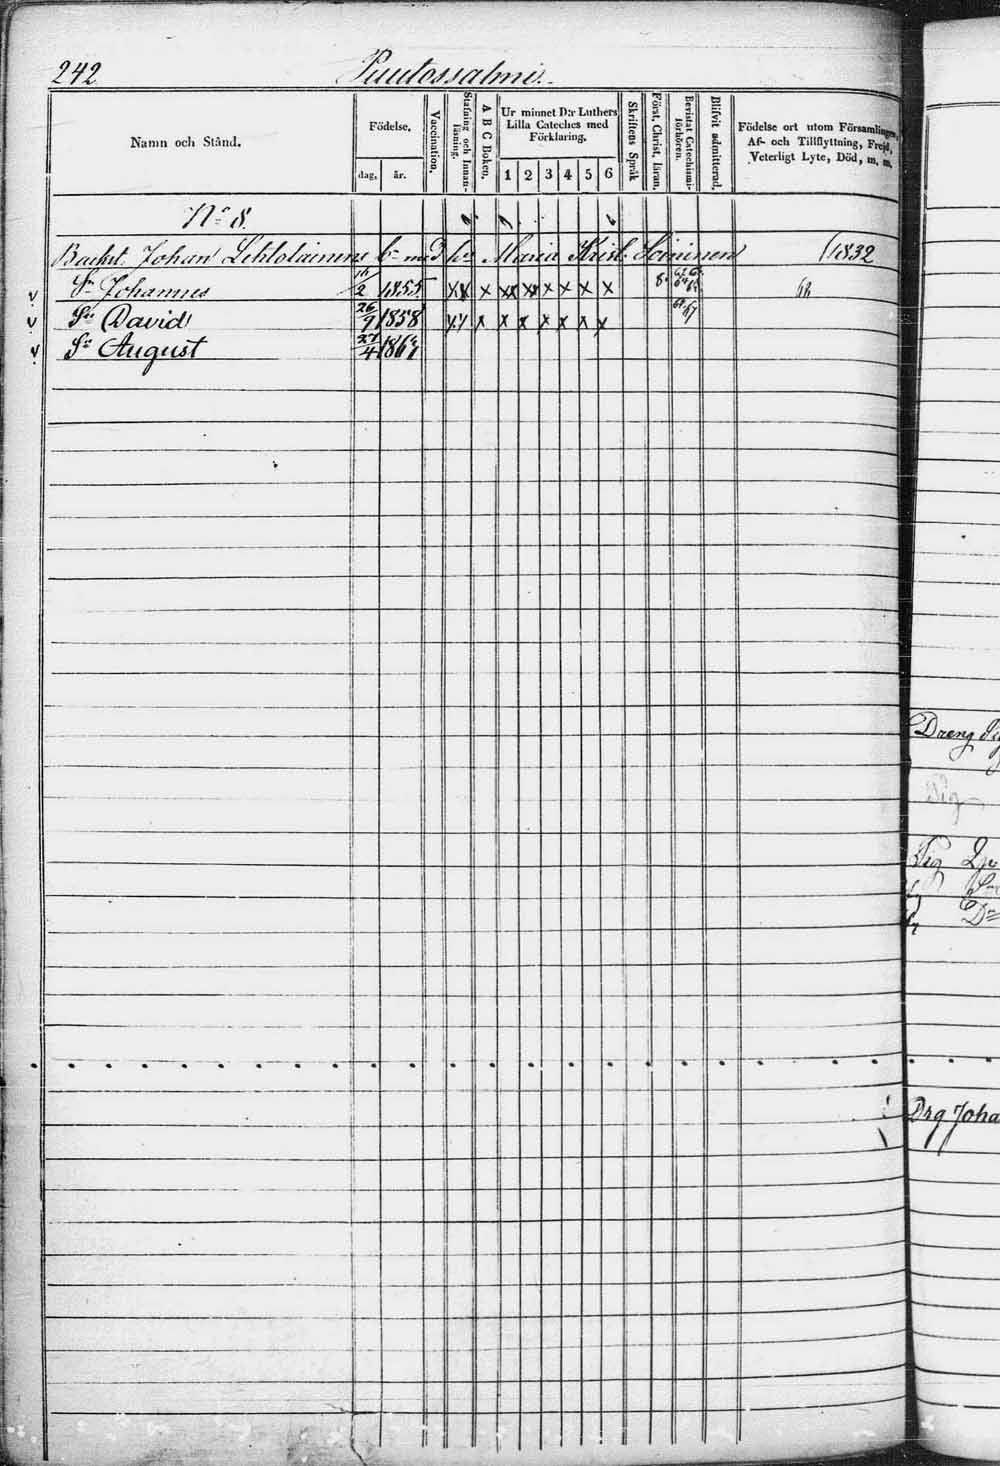 242 Puutossalmi.
Namn och Stånd.
Födelse.
dag. år.
Vaccination.
Stafning och Innanläsning.
A B C Boken.
Ur minnet D:r Luthers Lilla Cateches med Förklaring.
1 2 3 4 5 6
Skriftens Språk
Först. Christ. läran.
Bevistat Catechismiförhören.
Blifvit admitterad.
Födelse ort utom Församlingen, Af- och Tillflyttning, Frejd, Veterligt Lyte, Död, m. m.
No 8.
Backst. Johan Lehtolainens med Maria Krist. Soininen 1832
Sn Johannes 16/2 1855 x x x x x x x x x 8
Sn David 26/9 1858 x x x x x x x x x 67
Sn August 27/4 1861
Dreng
Pig
Drg Joha